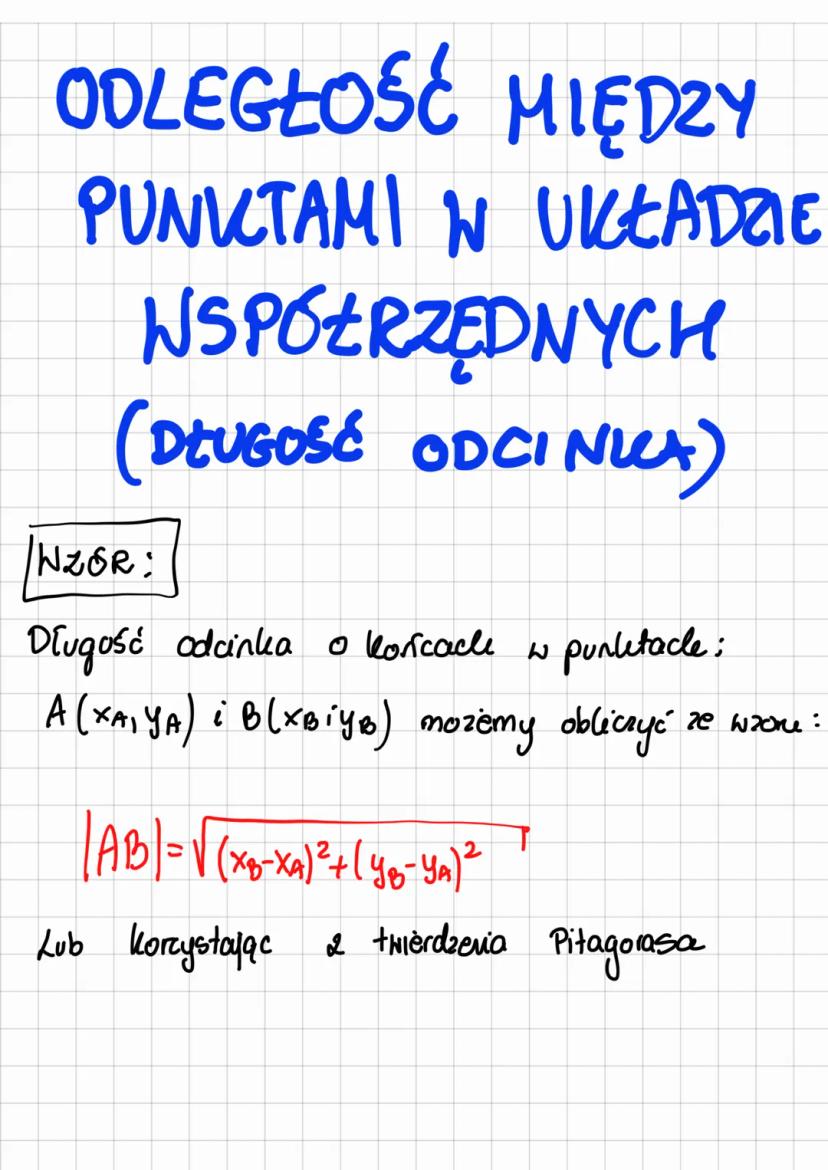 ODLEGŁOŚĆ MIĘDZY
PUNKTAMI W UKŁADZIE
WSPÓŁRZĘDNYCH
(DŁUGOŚĆ ODCINKA)
WZÓR:
Długość odcinka o końcach w punktach:
A(xA, yA) i B(xB; yB) możemy obliczyć ze wzoru:
|AB|=√(xB-xA)²+(yB-yA)²
Lub korzystając z twierdzenia Pitagorasa